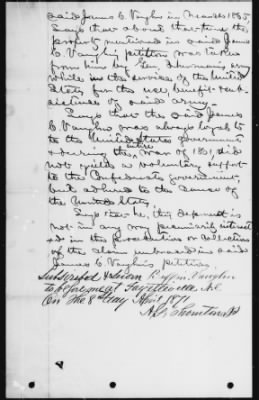 said James C. Vaughn in March 1865,
Says that about that time the
property mentioned in said James
C. Vaughn's petition was taken
from him by Gen. Sherman's army
while in the service of the United
States for the use, benefit &
of said army.
Says that the said James
C. Vaughn was always loyal to
the United States government
& during the entire war of 1861 did
not yield a voluntary support
to the Confederate government,
but adhered to the cause of
the United States
Says he, this deponent is
not in any way pecuniarily interest
ed in the prosecution or collection
of the claim embraced in said
James C. Vaughn's petition
Subscribed & sworn Ruffin Vaughn
to before me at Fayetteville N.C.
On the 8 day April 1871